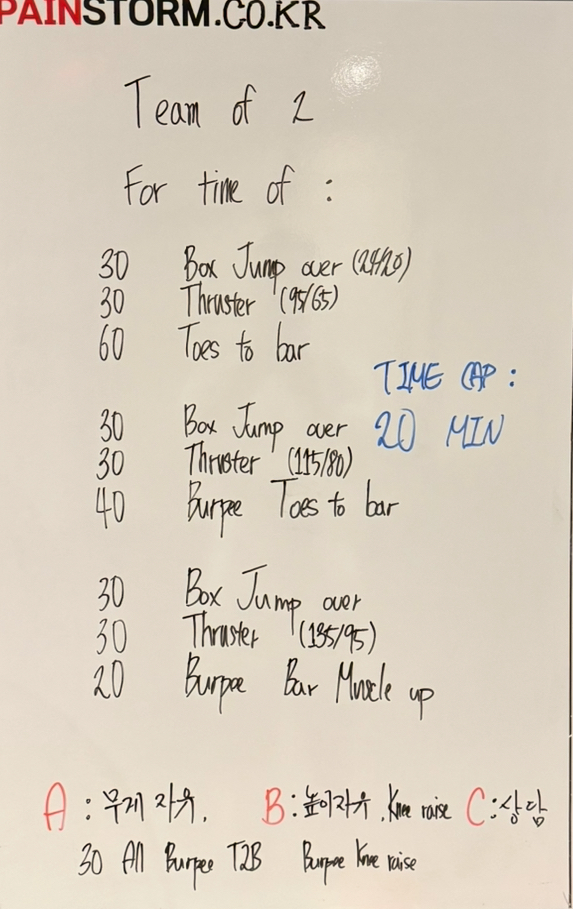 PAINSTORM.CO.KR
Team of 2
For time of :
30 Box Jump over (24/20)
30 Thruster (95/65)
60 Toes to bar
TIME CAP :
20 MIN
30 Box Jump over
30 Thruster (115/80)
40 Burpee Toes to bar
30 Box Jump over
30 Thruster (135/95)
20 Burpee Bar Muscle up
A : 무게 자유. B : 높이자유, Knee raise C : 상담
30 All Burpee T2B Burpee Knee raise